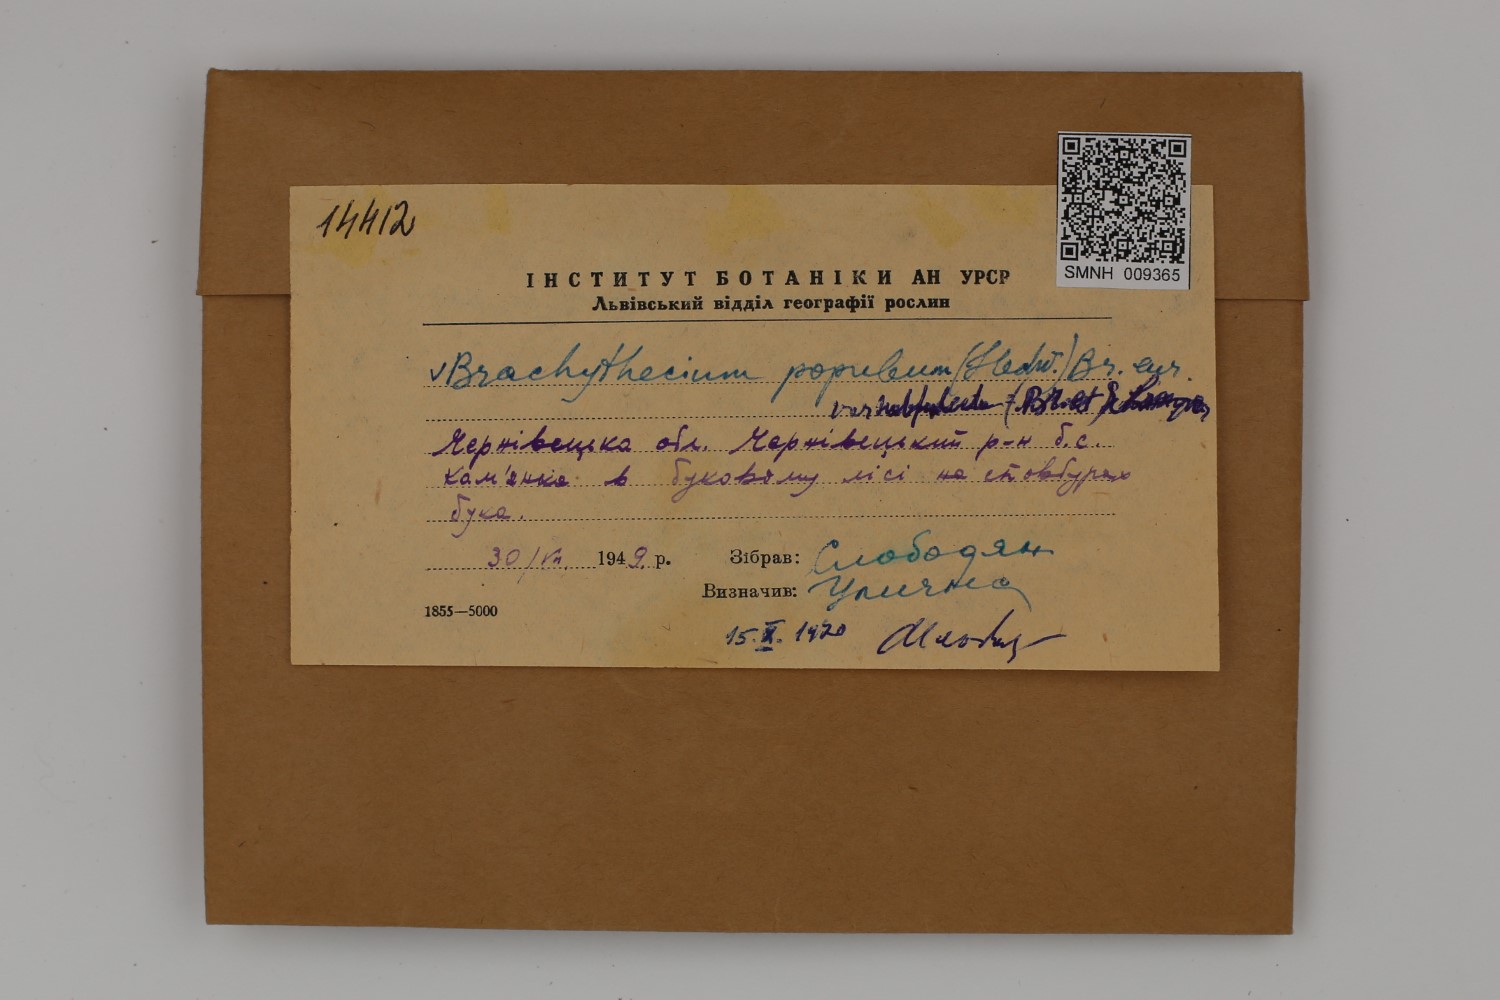 14412
SMNH 009365
ІНСТИТУТ БОТАНІКИ АН УРСР
Львівський відділ географії рослин
Brachythecium populeum (Hedw.) Br. eur.
var
Чернівецька обл. Чернівецький р-н б.с.
Кам'янка в буковому лісі на стовбурах
бука.
30/VII 1949. р. Зібрав: Слободян
Визначив: Улична
1855—5000
15.X. 1970